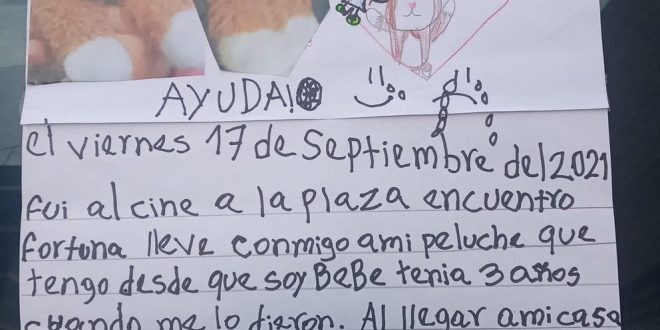 AYUDA!
El viernes 17 de Septiembre del 2021
fui al cine a la plaza encuentro
fortuna lleve conmigo ami peluche que
tengo desde que soy BeBe tenia 3 años
cuando me lo dieron. Al llegar amicasa